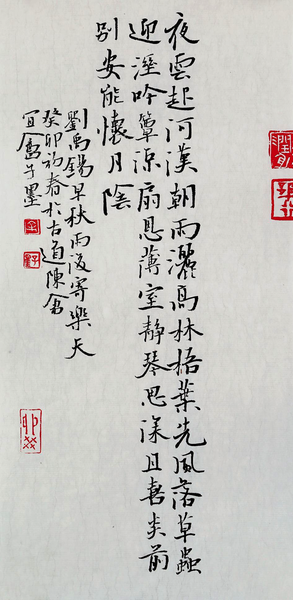 夜雲起河漢朝雨灑高林梧葉先風落草蟲
迎溼吟簟涼扇恩薄室靜琴思深且喜炎前
別安能懷月陰
劉禹錫早秋雨後寄樂天
癸卯初春於古道陳
宜子墨